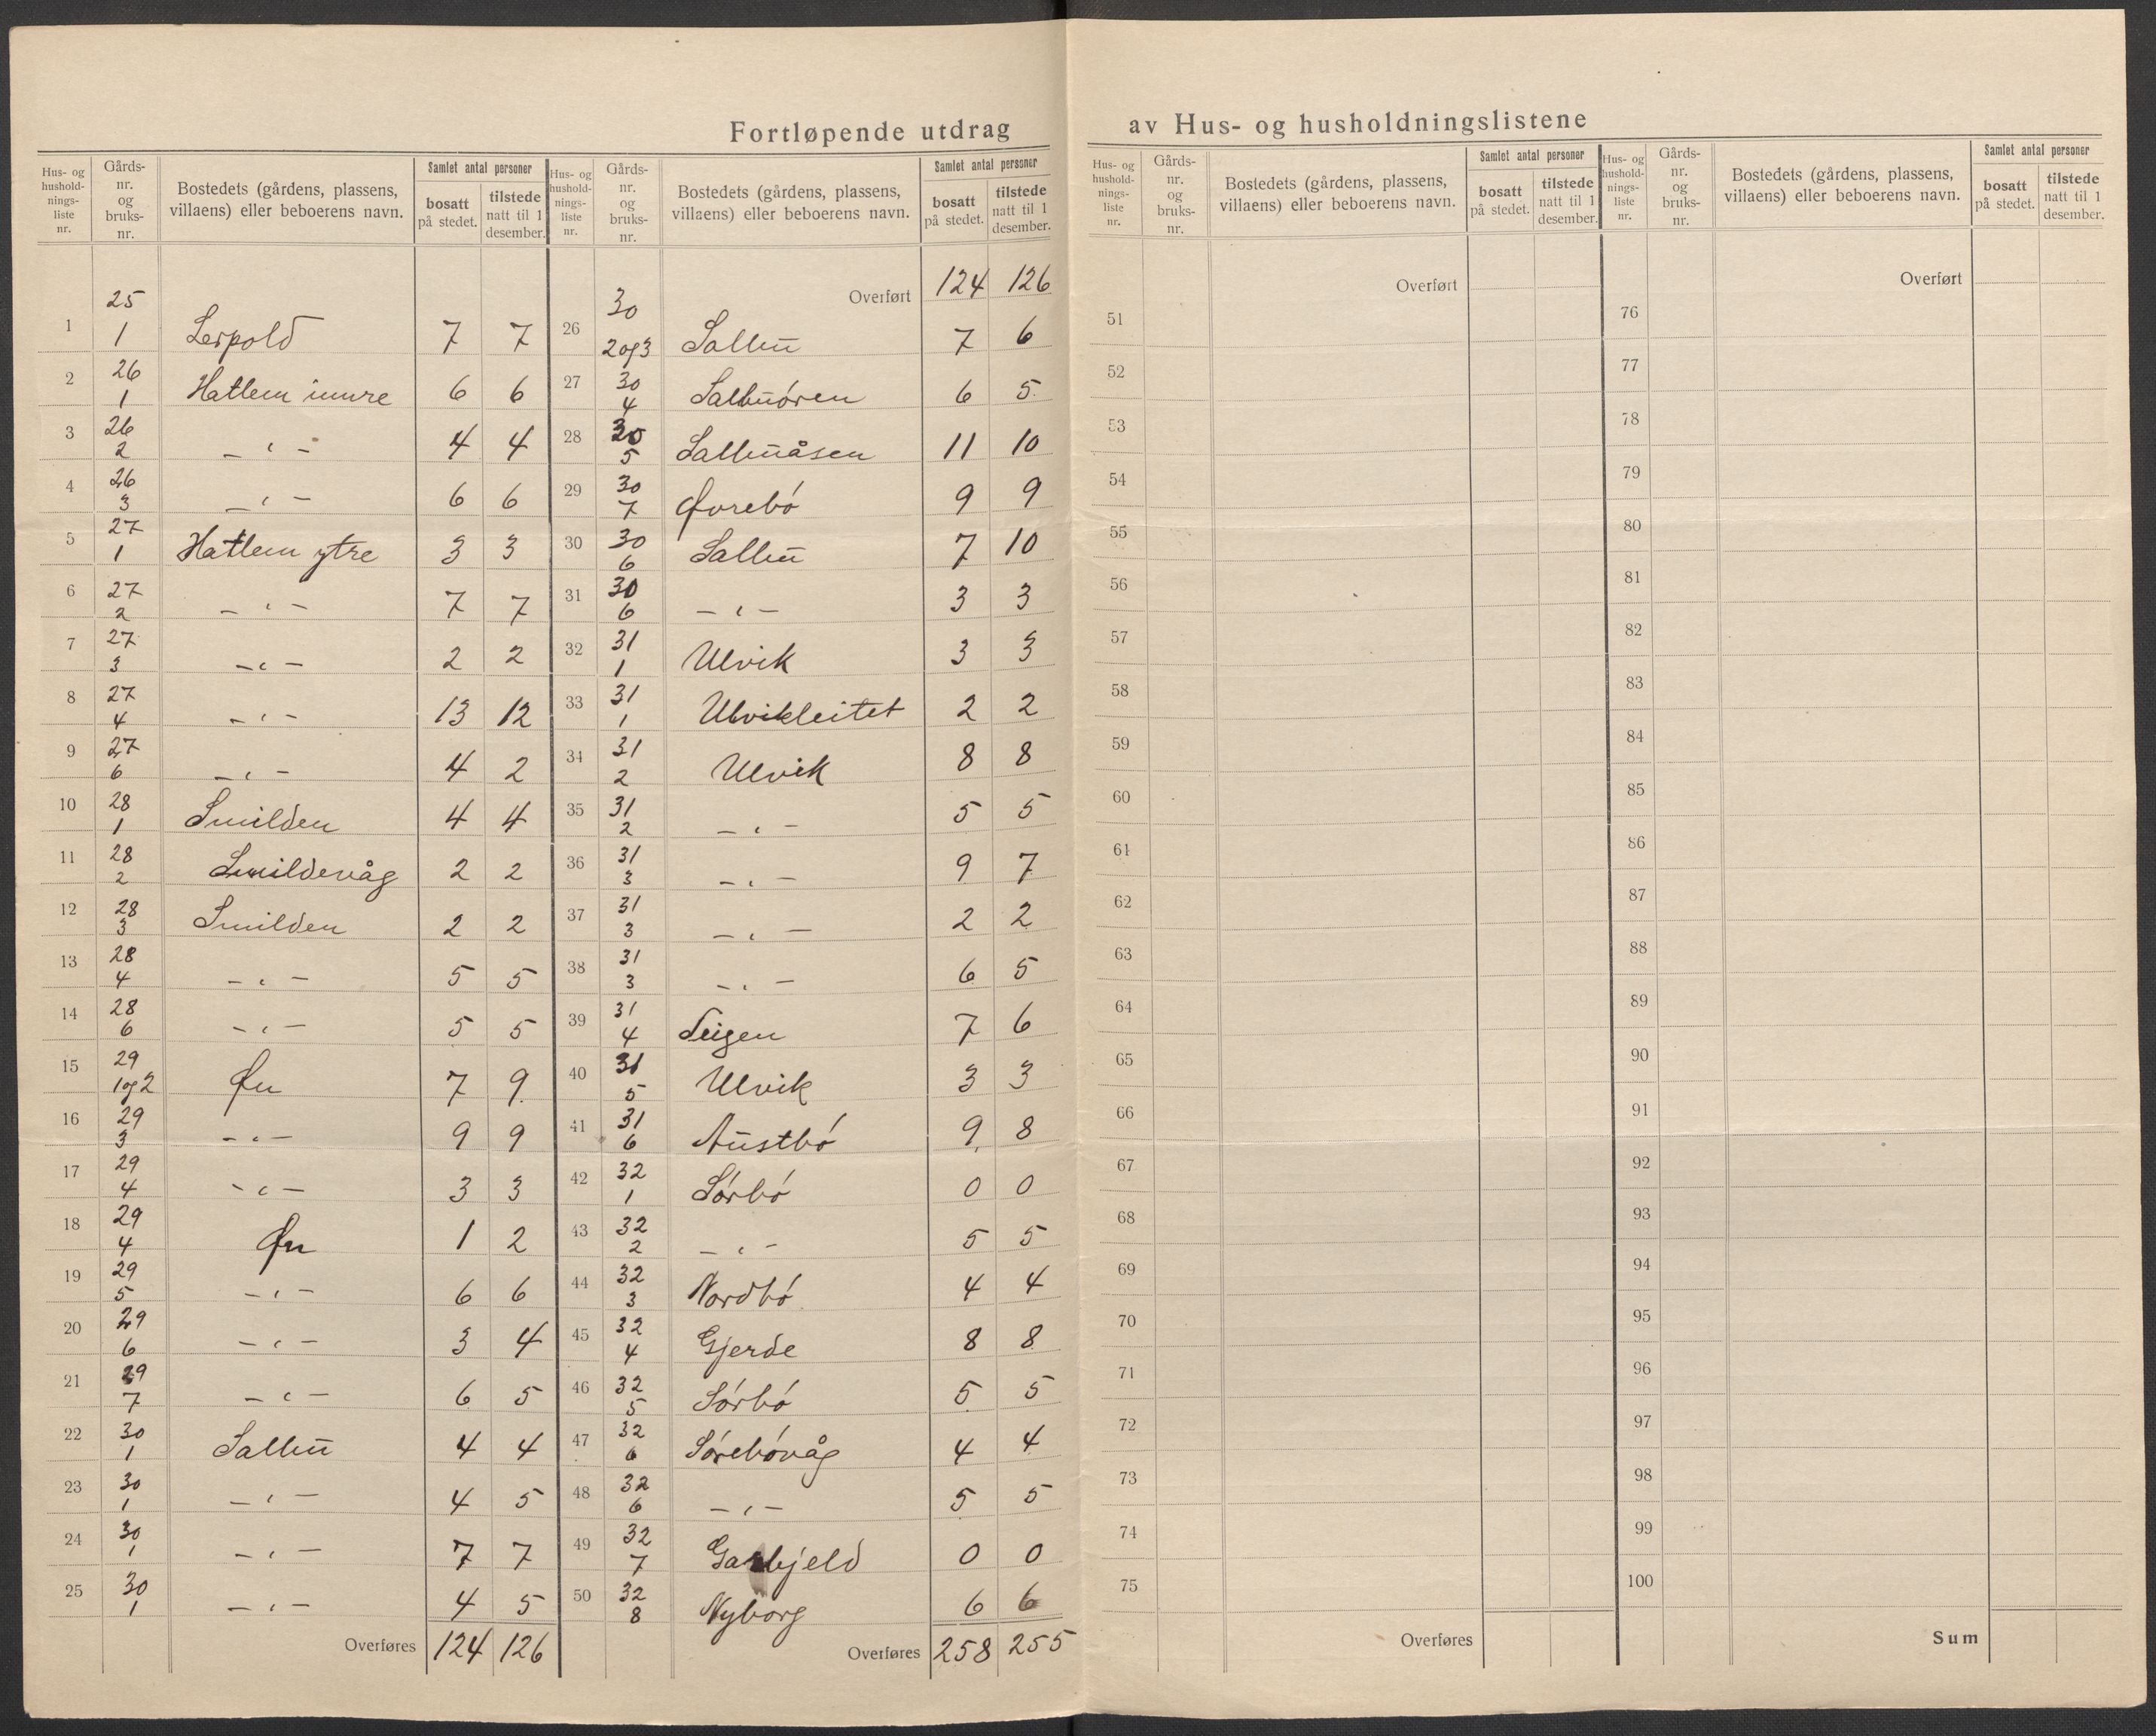 Fortløpende utdrag av Hus- og husholdningslistene
Hus- og hushold- nings- liste nr. | Gårds- nr. og bruks- nr. | Bostedets (gårdens, plassens, villaens) eller beboerens navn. | Samlet antal personer | bosatt på stedet. | tilstede natt til 1 desember.
1 25 1 Leipold 7 7
2 26 1 Hatlem innre 6 6
3 26 2 – " – 4 4
4 26 3 – " – 6 6
5 27 1 Hatlem ytre 3 3
6 27 2 – " – 7 7
7 27 3 – " – 2 2
8 27 4 – " – 13 12
9 27 6 – " – 4 2
10 28 1 Smilden 4 4
11 28 2 Smildevåg 2 2
12 28 3 Smilden 2 2
13 28 4 – " – 5 5
14 28 6 – " – 5 5
15 29 1 og 2 Øn 7 9
16 29 3 – " – 9 9
17 29 4 – " – 3 3
18 29 4 Øn 1 2
19 29 5 – " – 6 6
20 29 6 – " – 3 4
21 29 7 – " – 6 5
22 30 1 Salbu 4 4
23 30 1 – " – 4 5
24 30 1 – " – 7 7
25 30 1 – " – 4 5
Overføres 124 126
Hus- og hushold- nings- liste nr. | Gårds- nr. og bruks- nr. | Bostedets (gårdens, plassens, villaens) eller beboerens navn. | Samlet antal personer | bosatt på stedet. | tilstede natt til 1 desember.
Overført 124 126
26 30 2 og 3 Salbu 7 6
27 30 4 Salbuøren 6 5
28 30 5 Salbuåsen 11 10
29 30 7 Øvrebø 9 9
30 30 6 Salbu 7 10
31 30 6 – " – 3 3
32 31 1 Ulvik 3 3
33 31 1 Ulvikleitet 2 2
34 31 2 Ulvik 8 8
35 31 2 – " – 5 5
36 31 3 – " – 9 7
37 31 3 – " – 2 2
38 31 3 – " – 6 5
39 31 4 Teigen 7 6
40 31 5 Ulvik 3 3
41 31 6 Austbø 9 8
42 32 1 Sørbø 0 0
43 32 2 – " – 5 5
44 32 3 Nordbø 4 4
45 32 4 Gjerde 8 8
46 32 5 Sørbø 5 5
47 32 6 Sørebøvåg 4 4
48 32 6 – " – 5 5
49 32 7 0 0
50 32 8 Nyborg 6 6
Overføres 258 255
Hus- og hushold- nings- liste nr. | Gårds- nr. og bruks- nr. | Bostedets (gårdens, plassens, villaens) eller beboerens navn. | Samlet antal personer | bosatt på stedet. | tilstede natt til 1 desember.
Overført
51
52
53
54
55
56
57
58
59
60
61
62
63
64
65
66
67
68
69
70
71
72
73
74
75
Overføres
Hus- og hushold- nings- liste nr. | Gårds- nr. og bruks- nr. | Bostedets (gårdens, plassens, villaens) eller beboerens navn. | Samlet antal personer | bosatt på stedet. | tilstede natt til 1 desember.
Overført
76
77
78
79
80
81
82
83
84
85
86
87
88
89
90
91
92
93
94
95
96
97
98
99
100
Sum